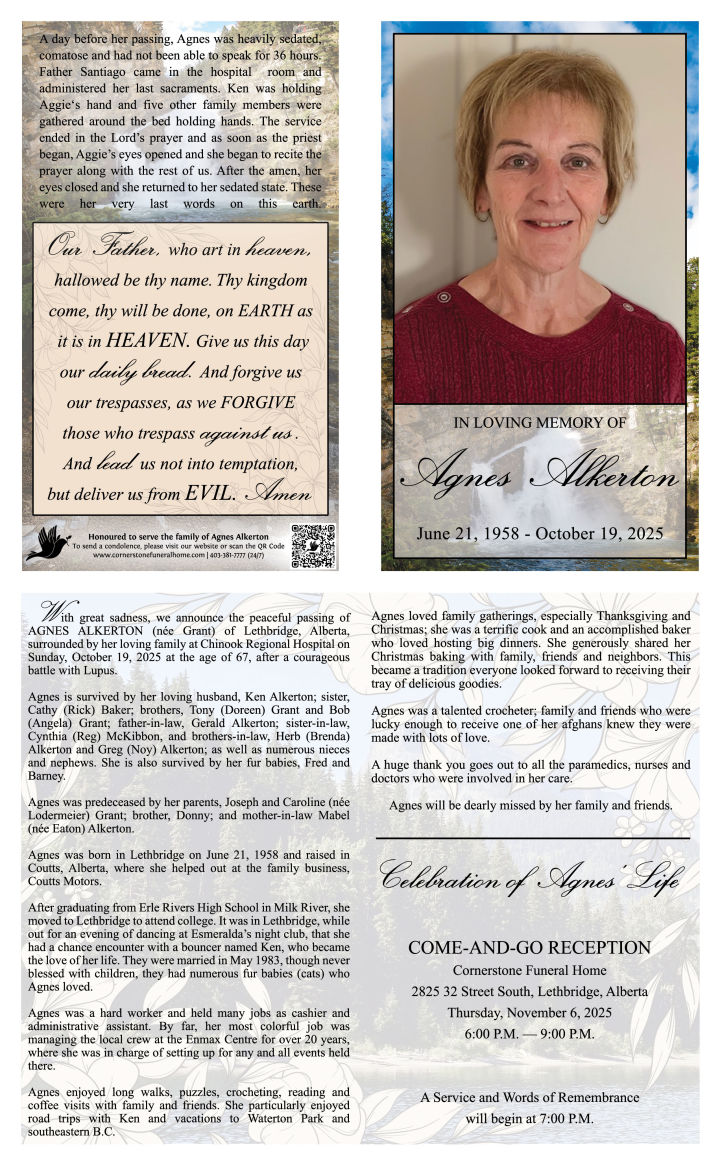 A day before her passing, Agnes was heavily sedated,
comatose and had not been able to speak for 36 hours.
Father Santiago came in the hospital room and
administered her last sacraments. Ken was holding
Aggie‘s hand and five other family members were
gathered around the bed holding hands. The service
ended in the Lord’s prayer and as soon as the priest
began, Aggie’s eyes opened and she began to recite the
prayer along with the rest of us. After the amen, her
eyes closed and she returned to her sedated state. These
were her very last words on this earth.
Our Father, who art in heaven,
hallowed be thy name. Thy kingdom
come, thy will be done, on EARTH as
it is in HEAVEN. Give us this day
our daily bread. And forgive us
our trespasses, as we FORGIVE
those who trespass against us .
And lead us not into temptation,
but deliver us from EVIL. Amen
Honoured to serve the family of Agnes Alkerton
To send a condolence, please visit our website or scan the QR Code
www.cornerstonefuneralhome.com | 403-381-7777 (24/7)
IN LOVING MEMORY OF
Agnes Alkerton
June 21, 1958 - October 19, 2025
With great sadness, we announce the peaceful passing of
AGNES ALKERTON (née Grant) of Lethbridge, Alberta,
surrounded by her loving family at Chinook Regional Hospital on
Sunday, October 19, 2025 at the age of 67, after a courageous
battle with Lupus.
Agnes is survived by her loving husband, Ken Alkerton; sister,
Cathy (Rick) Baker; brothers, Tony (Doreen) Grant and Bob
(Angela) Grant; father-in-law, Gerald Alkerton; sister-in-law,
Cynthia (Reg) McKibbon, and brothers-in-law, Herb (Brenda)
Alkerton and Greg (Noy) Alkerton; as well as numerous nieces
and nephews. She is also survived by her fur babies, Fred and
Barney.
Agnes was predeceased by her parents, Joseph and Caroline (née
Lodermeier) Grant; brother, Donny; and mother-in-law Mabel
(née Eaton) Alkerton.
Agnes was born in Lethbridge on June 21, 1958 and raised in
Coutts, Alberta, where she helped out at the family business,
Coutts Motors.
After graduating from Erle Rivers High School in Milk River, she
moved to Lethbridge to attend college. It was in Lethbridge, while
out for an evening of dancing at Esmeralda’s night club, that she
had a chance encounter with a bouncer named Ken, who became
the love of her life. They were married in May 1983, though never
blessed with children, they had numerous fur babies (cats) who
Agnes loved.
Agnes was a hard worker and held many jobs as cashier and
administrative assistant. By far, her most colorful job was
managing the local crew at the Enmax Centre for over 20 years,
where she was in charge of setting up for any and all events held
there.
Agnes enjoyed long walks, puzzles, crocheting, reading and
coffee visits with family and friends. She particularly enjoyed
road trips with Ken and vacations to Waterton Park and
southeastern B.C.
Agnes loved family gatherings, especially Thanksgiving and
Christmas; she was a terrific cook and an accomplished baker
who loved hosting big dinners. She generously shared her
Christmas baking with family, friends and neighbors. This
became a tradition everyone looked forward to receiving their
tray of delicious goodies.
Agnes was a talented crocheter; family and friends who were
lucky enough to receive one of her afghans knew they were
made with lots of love.
A huge thank you goes out to all the paramedics, nurses and
doctors who were involved in her care.
Agnes will be dearly missed by her family and friends.
Celebration of Agnes’ Life
COME-AND-GO RECEPTION
Cornerstone Funeral Home
2825 32 Street South, Lethbridge, Alberta
Thursday, November 6, 2025
6:00 P.M. — 9:00 P.M.
A Service and Words of Remembrance
will begin at 7:00 P.M.